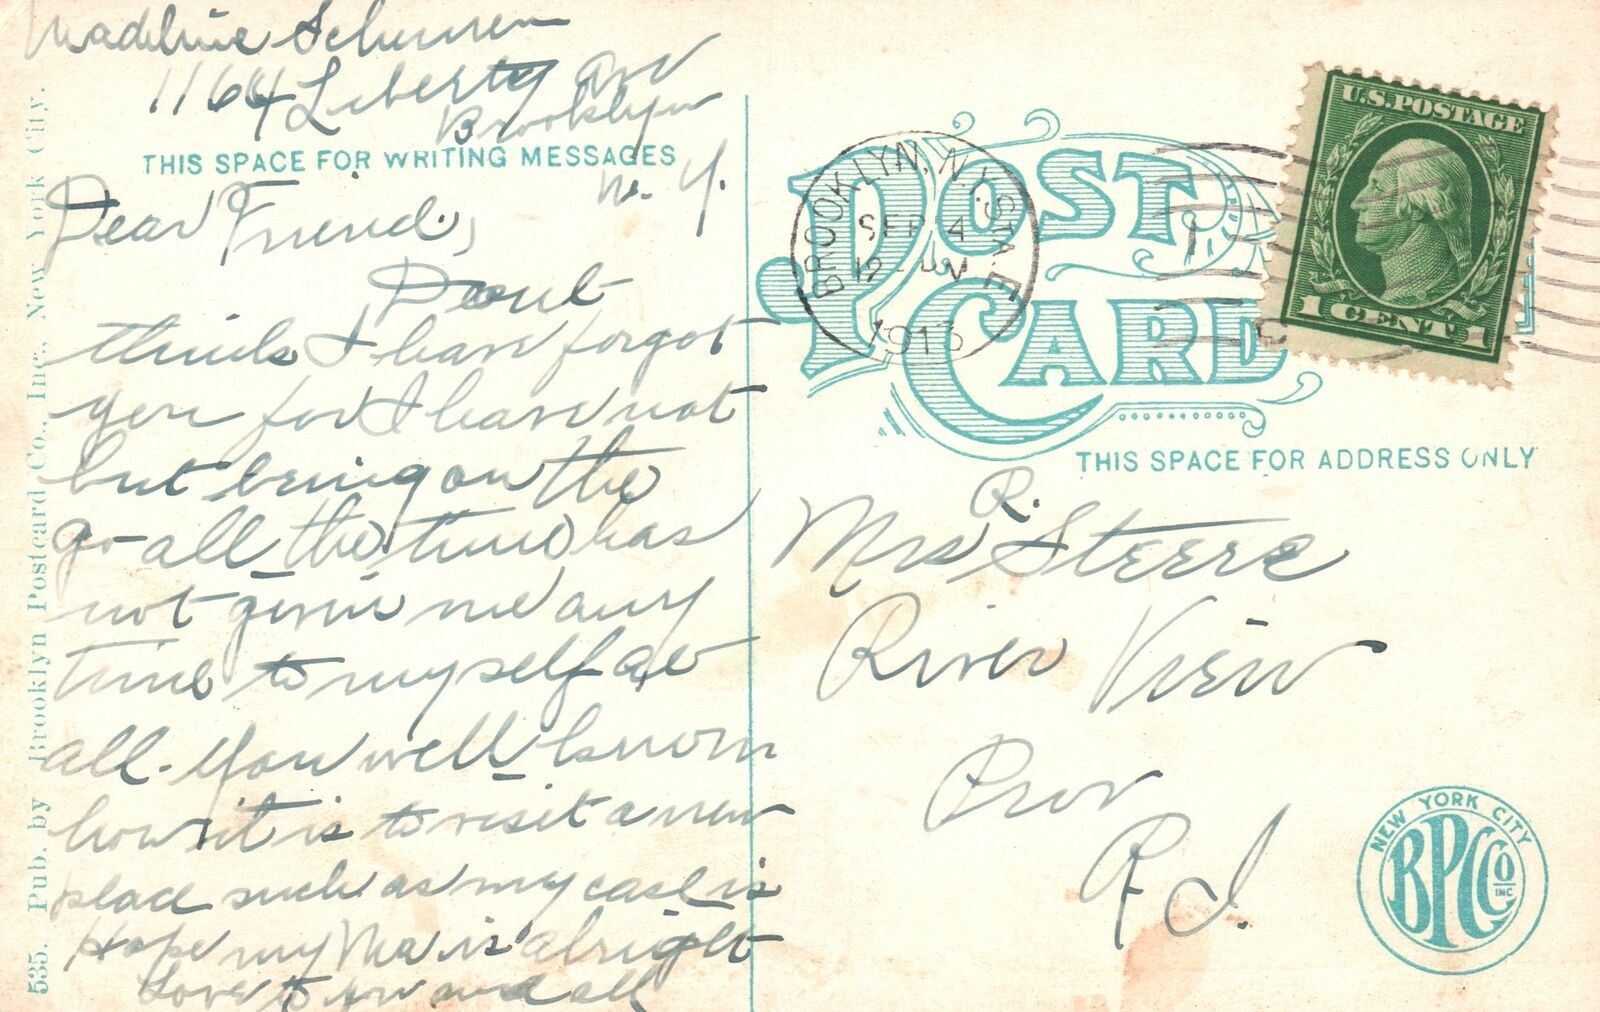 Madeline
1164 Liberty Ave
Brooklyn
N. Y.
THIS SPACE FOR WRITING MESSAGES
Dear Friend,
Don't
think I have forgot
you for I have not
but being on the
go all the time has
not given me any
time to myself at
all. You well know
how it is to visit a new
place such as my case is
Hope my Ma is alright
Love to you and all
535. Pub. by Brooklyn Postcard Co., Inc., New York City.
POST CARD
BROOKLYN, N.Y. STA. E
SEP 4
12
1913
U.S. POSTAGE
1 CENT 1
THIS SPACE FOR ADDRESS ONLY
Mrs R. Steere
River View
Prov
R I.
NEW YORK CITY
BPCCo
INC.